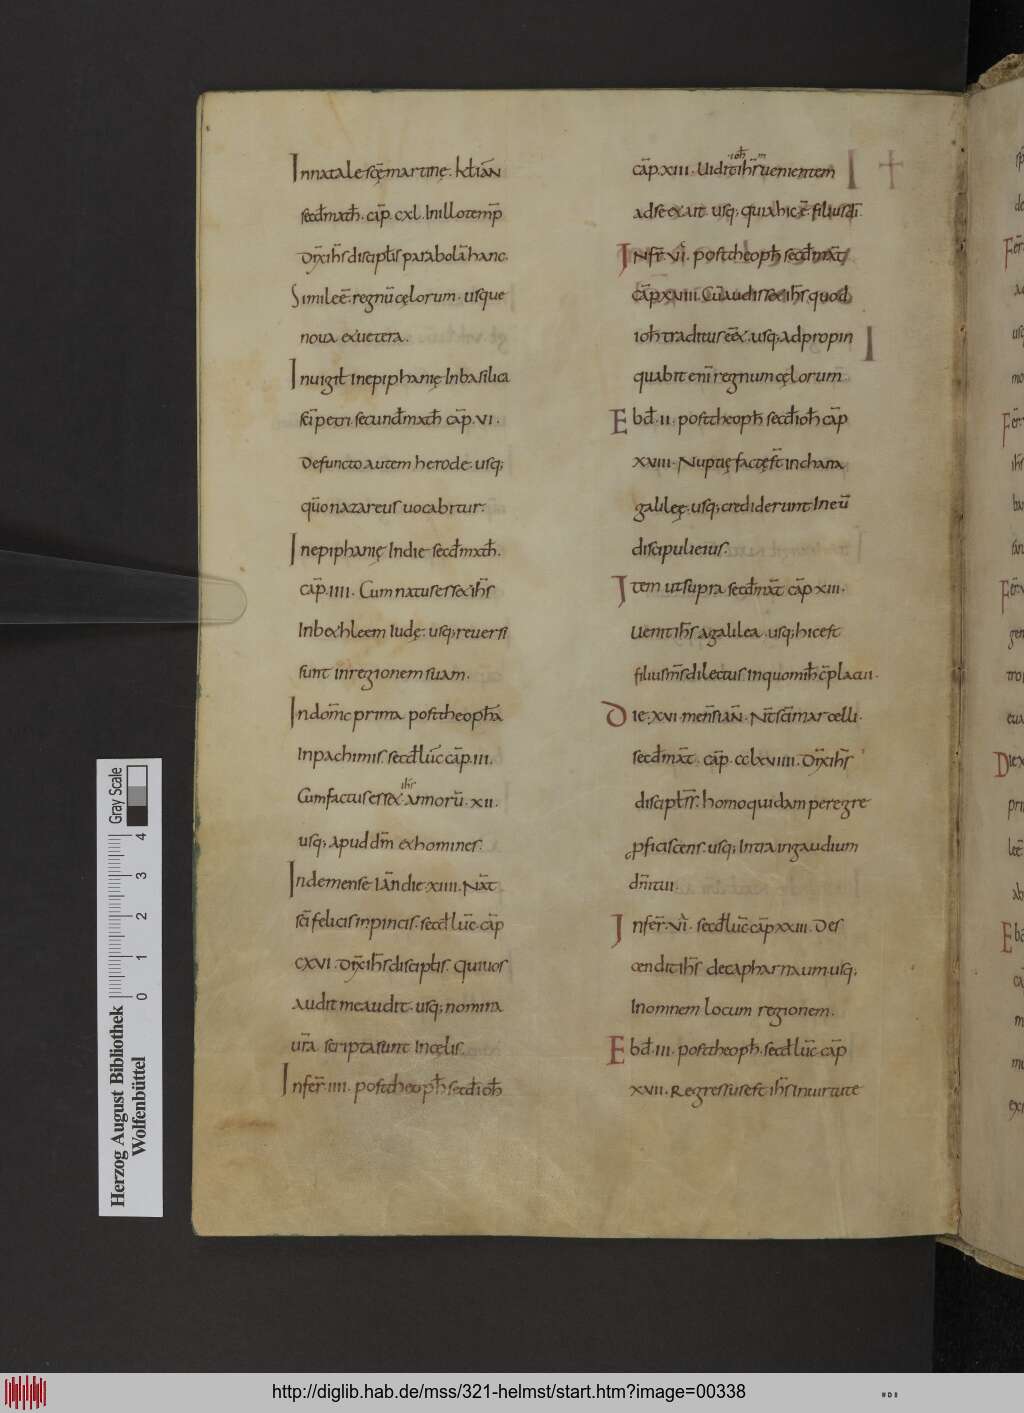 Innatale scę martinę. kł iāN
secđ mατħ. cap̄. cxl. In illo temp̄
dix̄ ihs̄ discipłis parabolā hanc.
Simile ē. regnū cęlorum. usque
nova et vetera.
In vigił in epiphanię In basilica
sci̅ petri. secund̄ matħ cap̄. VI.
Defuncto autem herode. usq;
qūo nazareus vocabitur.
In epiphanię In die secđ matħ.
cap̄. IIII. Cum natus esset ihs̄
In bethleem Iudę. usq; reversi
sunt in regionem suam.
In dom̄c prima post theoph̄a
In pachimis. secđ lūc cap̄. III.
ihs̄
Cum factus esset annorū. XII.
usq; apud dm̄ et homines.
In demense IāN die XIIII. Nāt
sci̅ felicis in pincis. secđ lūc cap̄
CXVI. Dix̄ ihs̄ discipłis. Qui vos
audit me audit. usq; nomina
ur̄a scripta sunt In cęlis.
In fer̄. IIII. post theopħ secđ ioħ
cap̄. XIII. Vidit ihs̄ venientem
ioħ m
ad se et ait usq; quia hic ē filius dī.
In fer̄. VI. post theopħ secđ māt
cap̄ XVIII. Cū audisset ihs̄ quod
ioħ traditus eēt. usq; adpropin
quabit enī regnum cęlorum.
Ebđ. II. post theopħ secđ ioħ cap̄
XVIII. Nuptię factę st̄ in chana
galileę. usq; crediderunt In eū
discipuli eius.
Item ut supra secđ māt cap̄ XIII.
Venit ihs̄ a galilea. usq; hic est
filius m̄s dilectus. In quo miħ cp̄lacui.
Die. XVI. mens̄ IāN. Nt̄ sci̅ marcelli.
secđ māt. cap̄. CCLXVIIII. Dix̄ ihs̄
discipłis. homo quidam peregre
pficiscens. usq; Intra in gaudium
dn̄i tui.
In fer̄. VI. secđ lūc cap̄ XXIII. Des
cendit ihs̄ de capharnaum. usq;
In omnem locum regionem.
Ebđ. III. post theopħ. secđ lūc. cap̄
XVII. Regressus est ihs̄ In virtute
Gray Scale
4
3
2
1
0
Herzog August Bibliothek
Wolfenbüttel
http://diglib.hab.de/mss/321-helmst/start.htm?image=00338